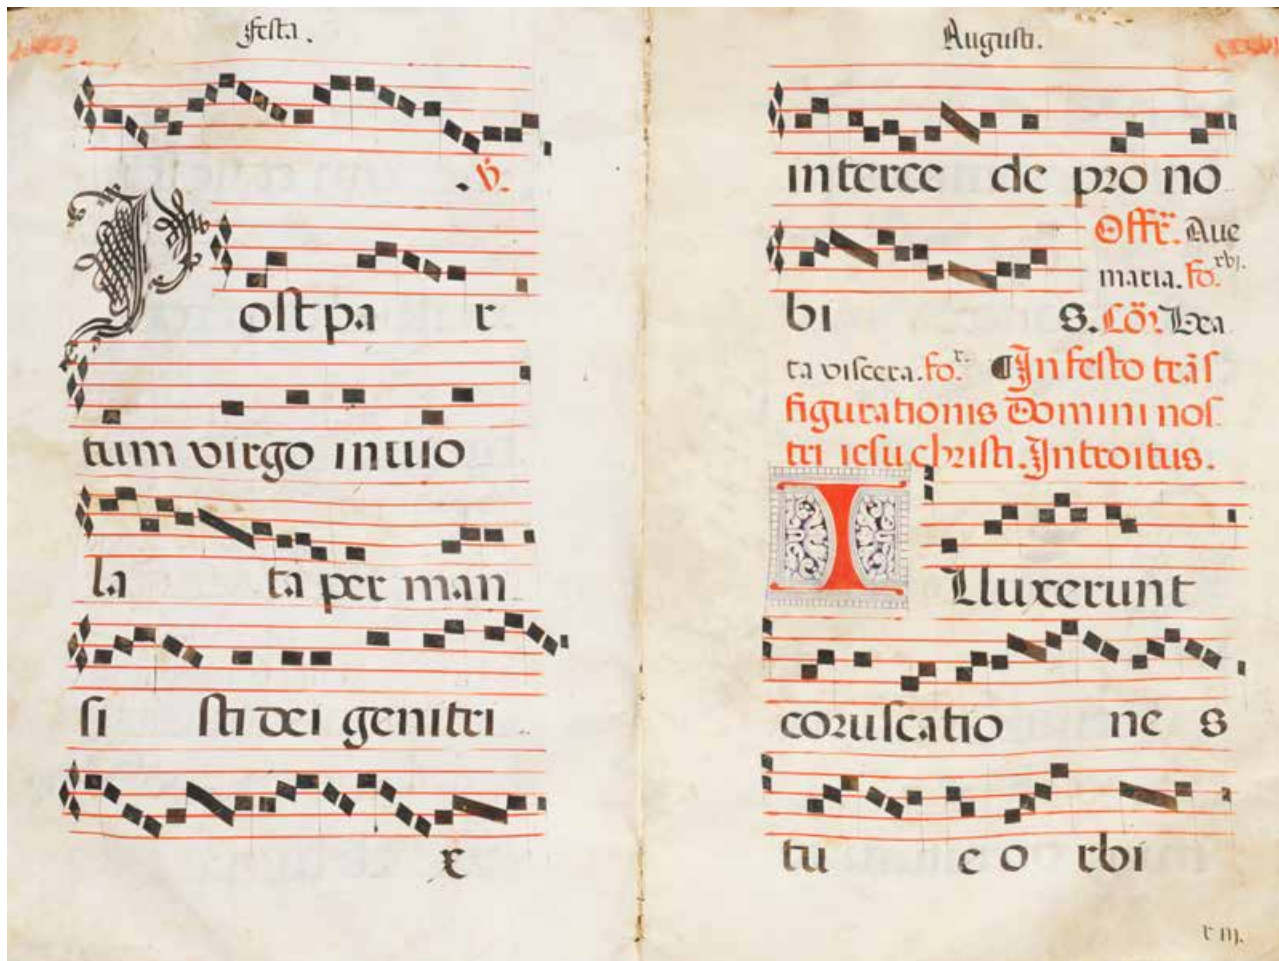 festa.
℣.
Post pa r
tum virgo inuio
la ta per man
si sti dei genitri
x
Augusti.
interce de pro no
bi s.
Offr̄. Aue
maria. fo. xbj.
Cōm̄. Bea
ta viscera. fo. x. In festo trās
figurationis Domini nos
tri iesu christi. Introitus.
Illuxerunt
coruscatio ne s
tu e o rbi